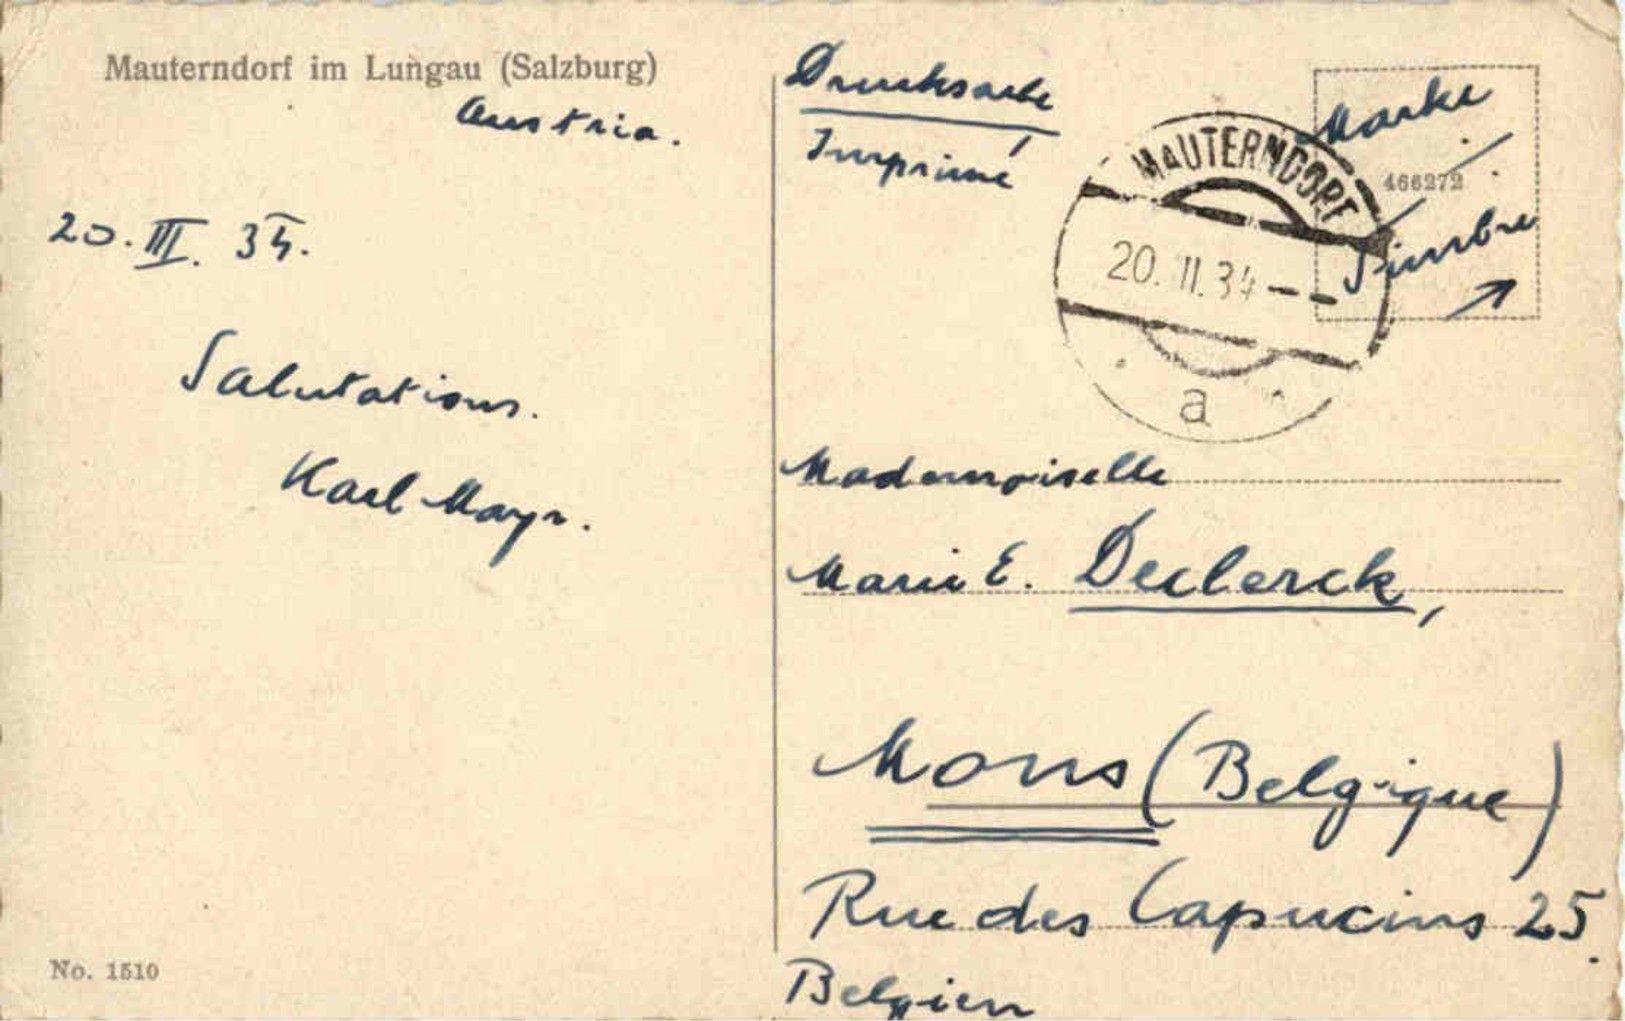 Mauterndorf im Lungau (Salzburg)
Austria.
20. III. 34.
Salutations.
Karl Mayr.
No. 1510
Drucksache
Imprimé
MAUTERNDORF
20. II. 34
a
Marke
466272
Timbre
Mademoiselle
Marie E. Declerck,
Mons (Belgique)
Rue des Capucins 25.
Belgien